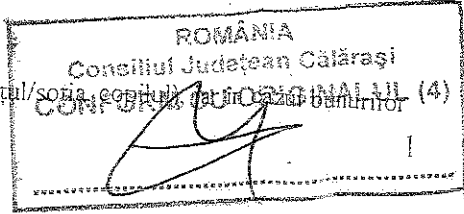 ROMÂNIA
Consiliul Județean Călărași
CONFORM CU ORIGINALUL (4)
țul/soția, copilul), iar în cazul bunurilor
1